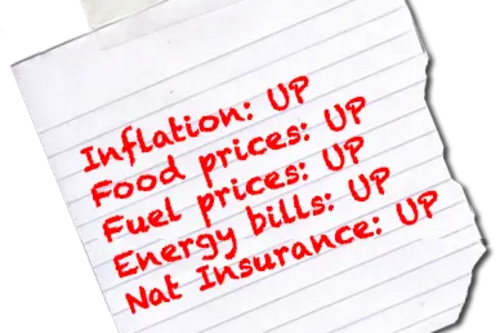 Inflation: UP
Food prices: UP
Fuel prices: UP
Energy bills: UP
Nat Insurance: UP